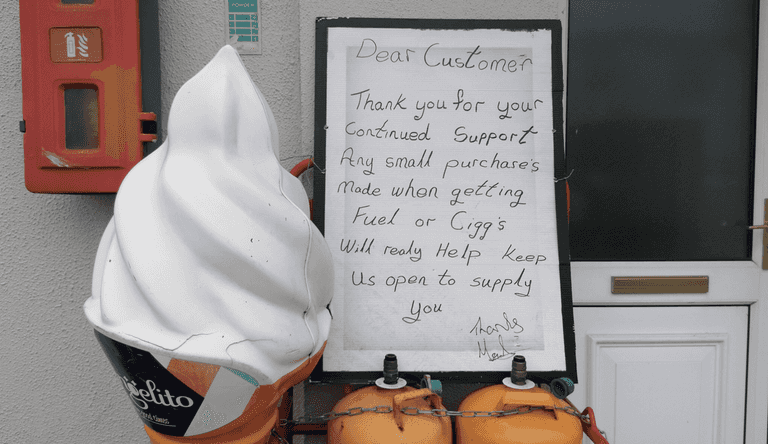 Dear Customer
Thank you for your
Continued Support
Any small purchase's
Made when getting
Fuel or Cigg's
Will realy Help Keep
Us open to supply
you
Thanks
gelito